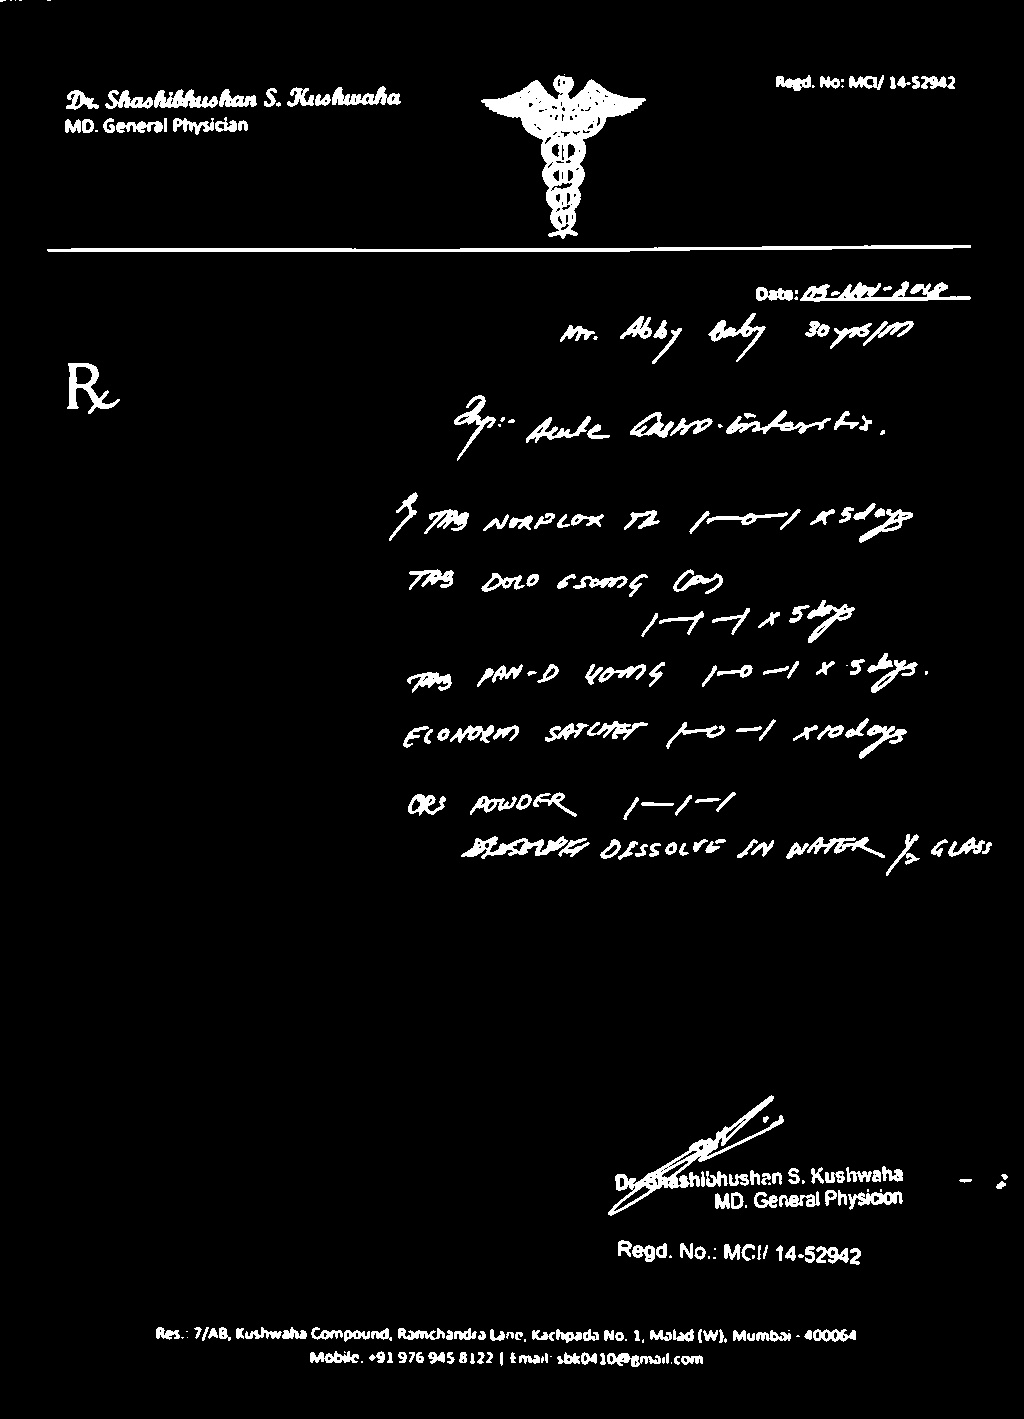 Dr. Shashibhushan S. Kushwaha
MD. General Physician
Regd. No: MCI/ 14-52942
Date: 05-Nov-2018
Mr. Abby Baby 30 yrs/M
Rx
Imp:- Acute Gastro-Enteritis.
TAB NORFLOX TZ 1-0-1 x 5 days
TAB DOLO 650MG
1-1-1 x 5 days
TAB PAN-D 40MG 1-0-1 x 5 days.
ECONORM SATCHET 1-0-1 x 10 days
ORS POWDER 1-1-1
DISSOLVE IN WATER 1/2 GLASS
Dr. Shashibhushan S. Kushwaha
MD. General Physician
Regd. No.: MCI/ 14-52942
Res.: 7/AB, Kushwaha Compound, Ramchandra Lane, Kachpada No. 1, Malad (W), Mumbai - 400064
Mobile. +91 976 945 8122 | Email: sbk0410@gmail.com